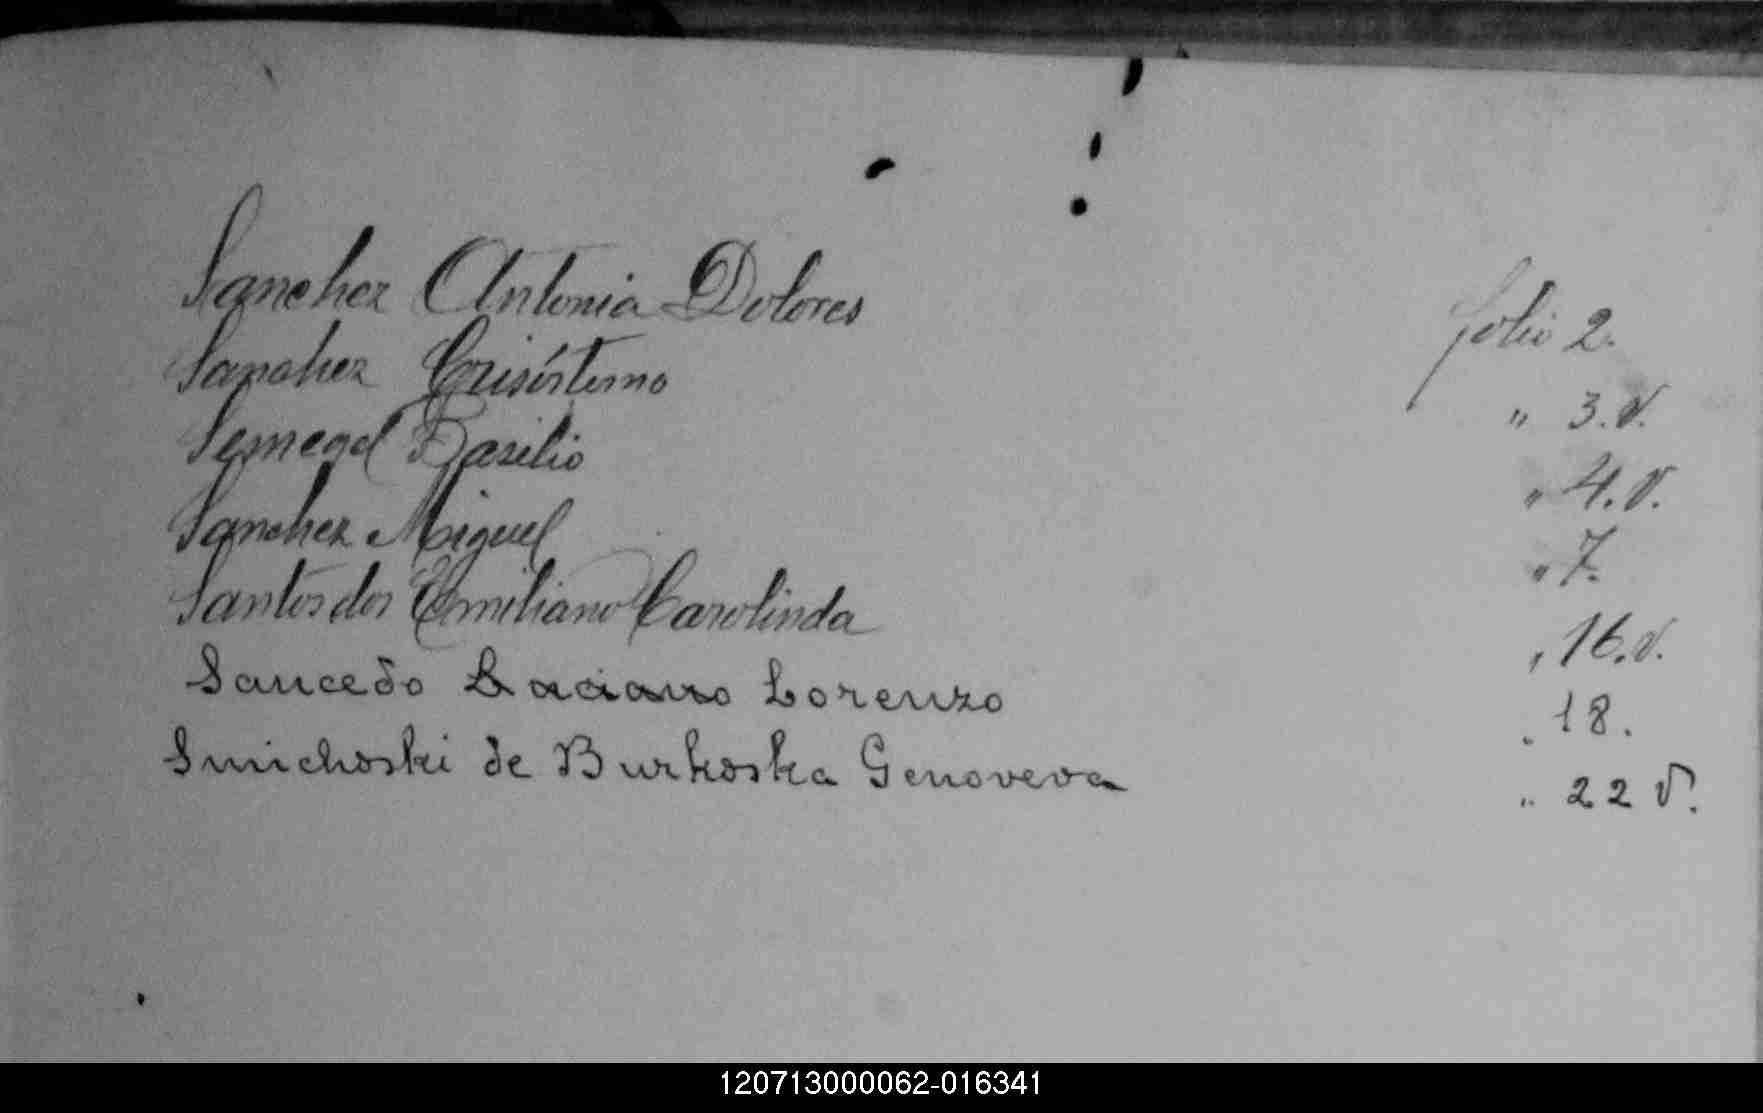 Sanchez Antonia Dolores folio 2.
Sanchez Crisóstomo " 3.v.
Basilio " 4.v.
Sanchez Miguel " 7.
Santos dos Emiliano Carolinda " 16.v.
Saucedo Lorenzo " 18.
Smichoski de Burkoska Genoveva " 22 v.
120713000062-016341